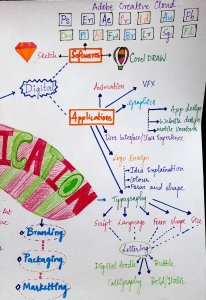 Adobe Creative Cloud
Ps En Ae Pr Id Au Pb
Dw Fl Ai Br Lr Sg Fl
Sketch
Softwares
Corel DRAW
Digital
Animation
VFX
Graphics
Applications
App design
Website design
Mobile
User Interface/User Experience
Logo Design
Idea Explaination
Colour
Form and shape
ICATION
Typography
Script
Language
Form
shape
Size
Lettering
Branding
Packaging
Marketting
Digital doodle
Bubble
Calligraphy
Bold/Italic